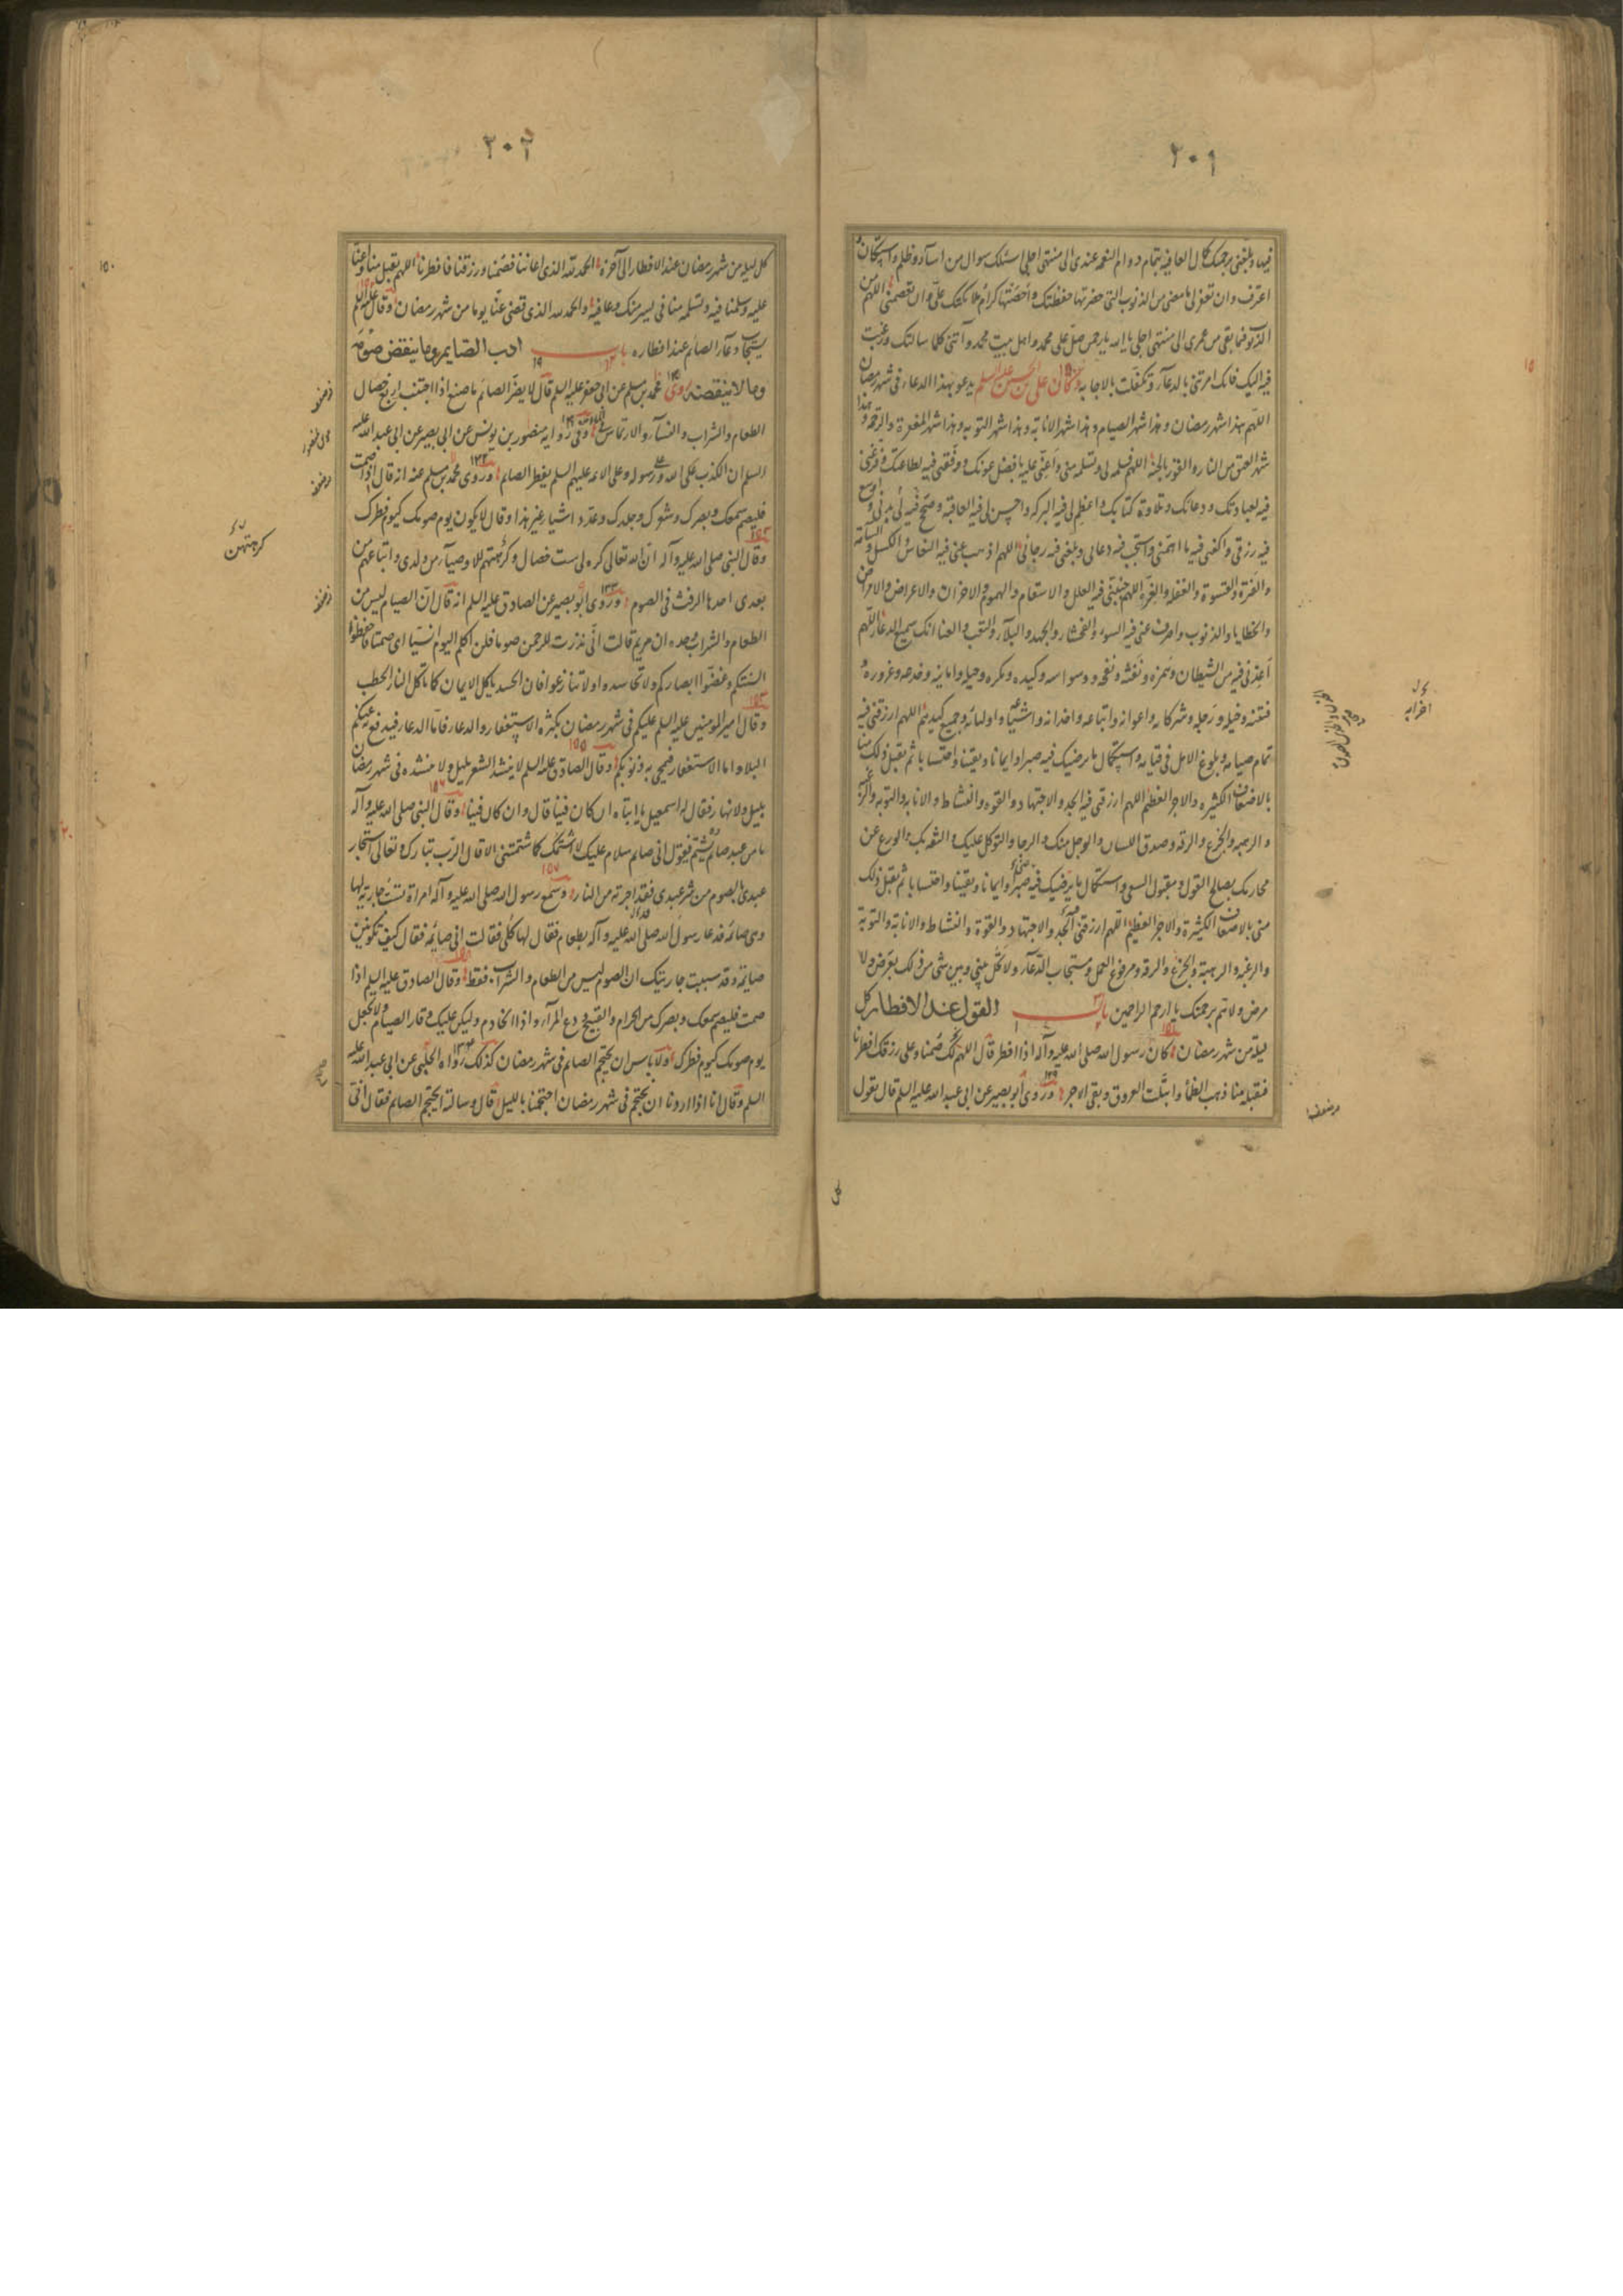 ٢٠١
فيها وبلغني برحمتك كمال العافية بتمام دوام النعمة عندي الى منتهى اجلي اسئلك سوال من اساء وظلم واستكان
اعترف وان تغفر لي ما مضى من الذنوب التي حضرتها حفظتك واحصتها كرام ملائكتك علي وان تعصمني اللهم من
الذنوب فيما بقي من عمري الى منتهى اجلي يا الله يا رحمن صل على محمد واهل بيت محمد وآتني كلما سالتك ورغبت
فيه اليك فانك امرتني بالدعآء وتكفلت بالاجابة وكان علي بن الحسين عليه السلم يدعو بهذا الدعاء في شهر رمضان
اللهم هذا شهر رمضان وهذا شهر الصيام وهذا شهر الانابة وهذا شهر التوبه وهذا شهر المغفرة والرحمة وهذا
شهر العتق من النار والفوز بالجنة اللهم فسلمه لي وتسلمه مني واعني عليه بافضل عونك ووفقني فيه لطاعتك وفرغني
فيه لعبادتك ودعائك وتلاوة كتابك واعظم لي فيه البركة واحسن لي فيه العاقبة وصحح فيه لي بدني واوسع
فيه رزقي واكفني فيه ما اهمني واستجب فيه دعائي وبلغني فيه رجائي اللهم اذهب عني فيه النعاس والكسل والسآمة
والفترة والقسوة والغفلة والغرة اللهم جنبني فيه العلل والاسقام والهموم والاحزان والاعراض والامراض
والخطايا والذنوب واصرف عني فيه السوء والفحشاء والجهد والبلآء والتعب والعنا انك سميع الدعاء اللهم
اعذني فيه من الشيطان وهمزه ونفثه ونفخه ووسواسه وكيده ومكره وحيله وامانيه وخدعه وغروره
فتنته وخيله ورجله وشركائه واعوانه واتباعه واخدانه واشياعه واوليائه وجميع كيدهم اللهم ارزقني فيه
تمام صيامه وبلوغ الامل في قيامه واستكمال ما يرضيك فيه صبرا وايمانا ويقينا واحتسابا ثم تقبل ذلك منا
بالاضعاف الكثيره والاجر العظيم اللهم ارزقني فيه الجد والاجتهاد والقوه والنشاط والانابة والتوبه والرغبة
والرهبه والجزع والرقه وصدق اللسان والوجل منك والرجا والتوكل عليك والثقه بك والورع عن
محارمك بصالح القول ومقبول السعي واستكمال ما يرضيك فيه صبرا وايمانا ويقينا واحتسابا ثم تقبل ذلك
مني بالاضعاف الكثيرة والاجر العظيم اللهم ارزقني الجد والاجتهاد والقوة والنشاط والانابة والتوبة
والرغبة والرهبة والجزع والرقه ومرفوع العمل ومستجاب الدعآء ولا تحل بيني وبين شئ من ذلك بعرض ولا
مرض ولا هم برحمتك يا ارحم الراحمين باب القول عند الافطار كل
ليلة من شهر رمضان كان رسول الله صلى الله عليه وآله اذا افطر قال اللهم لك صمنا وعلى رزقك افطرنا
فتقبله منا ذهب الظمأ وابتلت العروق وبقي الاجر وروى ابو بصير عن ابي عبد الله عليه السلم قال تقول
٢٠٢
كل ليله من شهر رمضان عند الافطار الى آخره الحمد لله الذي اعاننا فصمنا ورزقنا فافطرنا اللهم تقبل منا واعنا
عليه وسلمنا فيه وتسلمه منا في يسر منك وعافية والحمد لله الذي قضى عنا يوما من شهر رمضان وقال عليه السلم
يستجاب دعآء الصائم عند افطاره باب ادب الصايم وما ينقض صومه
وما لا ينقضه روى محمد بن مسلم عن ابي جعفر عليه السلم قال لا يضر الصائم ما صنع اذا اجتنب اربع خصال
الطعام والشراب والنسآء والارتماس في المآء وفي رواية منصور بن يونس عن ابي بصير عن ابي عبد الله عليه
السلم ان الكذب على الله وعلى رسوله وعلى الائمه عليهم السلم يفطر الصائم وروى محمد بن مسلم عنه انه قال اذا صمت
فليصم سمعك وبصرك وشعرك وجلدك وعدد اشياء غير هذا وقال لا يكون يوم صومك كيوم فطرك
وقال النبي صلى الله عليه وآله ان الله تعالى كره لي ست خصال وكرهتهم للاوصيآء من ولدي واتباعهم من
بعدي احدها الرفث في الصوم وروى ابو بصير عن الصادق عليه السلم انه قال ان الصيام ليس من
الطعام والشراب وحده ان مريم قالت اني نذرت للرحمن صوما فلن اكلم اليوم انسيا اي صمتا فاحفظوا
السنتكم وغضوا ابصاركم ولا تحاسدوا ولا تنازعوا فان الحسد ياكل الايمان كما تاكل النار الحطب
وقال امير المومنين عليه السلم عليكم في شهر رمضان بكثرة الاستغفار والدعاء فاما الدعاء فيدفع عنكم
البلاء واما الاستغفار فيمحى به ذنوبكم وقال الصادق عليه السلم لا ينشد الشعر بليل ولا ينشد في شهر رمضان
بليل ولا نهار فقال له اسمعيل يا ابتاه ان كان فينا قال وان كان فينا وقال النبي صلى الله عليه وآله
ما من عبد صائم يشتم فيقول اني صايم سلام عليك لا اشتمك كما شتمتني الا قال الرب تبارك وتعالى استجار
عبدي بالصوم من شر عبدي فقد اجرته من النار وسمع رسول الله صلى الله عليه وآله امراة تسب جارية لها
وهي صائمه فدعا رسول الله صلى الله عليه وآله بطعام فقال لها كلي فقالت اني صايمه فقال كيف تكونين
صايمه وقد سببت جاريتك ان الصوم ليس من الطعام والشراب فقط وقال الصادق عليه السلم اذا
صمت فليصم سمعك وبصرك من الحرام والقبيح ودع المرآء واذا الخادم وليكن عليك وقار الصيام ولا تجعل
يوم صومك كيوم فطرك ولا باس ان يحتجم الصائم في شهر رمضان كذلك رواه الحلبي عن ابي عبد الله عليه
السلم وقال انا اذا اردنا ان نحتجم في شهر رمضان احتجمنا بالليل قال وسالته ايحتجم الصائم فقال اني
كرهتهن
١٥٠